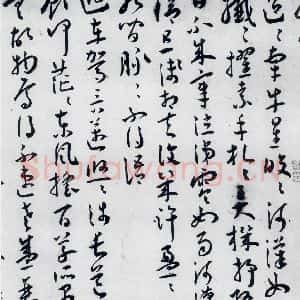 迢〻牽牛星皎〻河漢女
纖〻擢素手札〻弄機杼
日不成章泣涕零如雨河漢
清且淺相去復幾許盈〻
水間脈〻不得語
迴車駕言邁悠〻涉長道
顧何茫〻東風搖百草所遇
無故物焉得不速老盛衰
Shufawang.CN